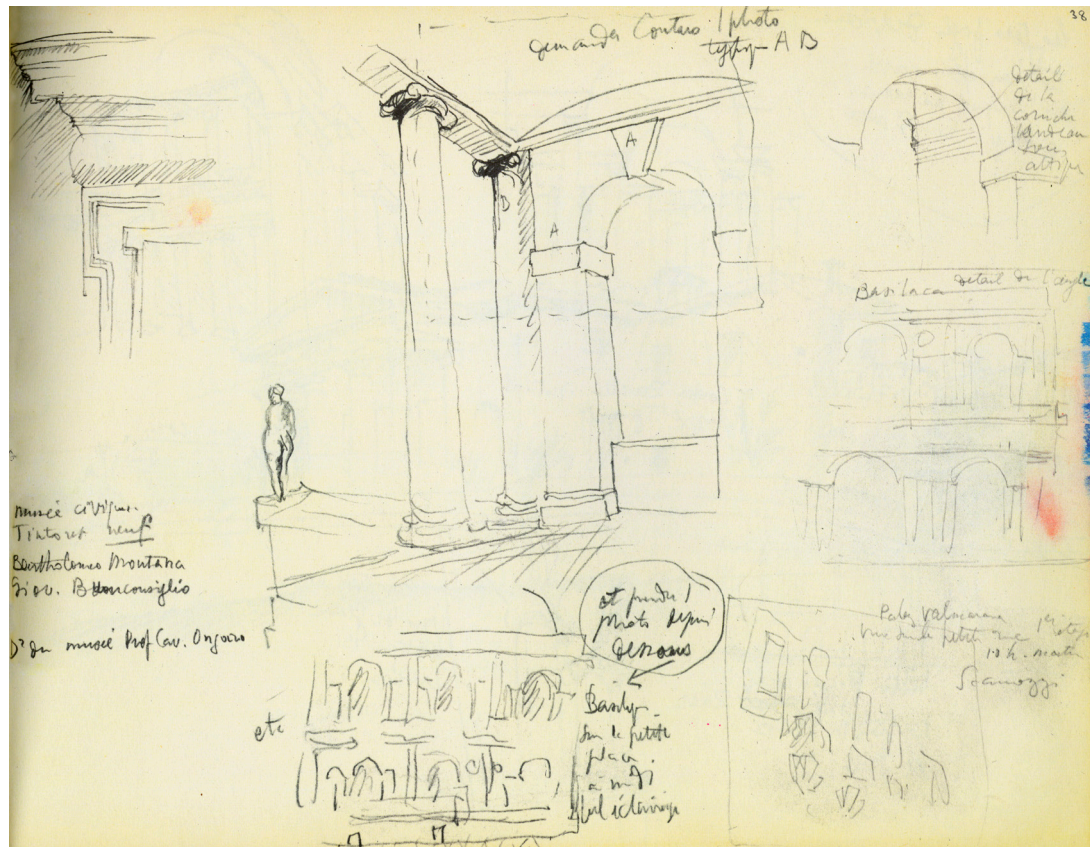 38
demander Contaro 1 photo
A B
A
A
B
détail
de la
corniche
bandeau
Basilica détail de l'angle
musée civique.
Tintoret neuf
Bartholomeo Montana
Giov. Buonconsiglio
Dr du musée Prof Cav. Ongaro
et prendre 1
photo depuis
dessous
etc
Basiliq.
sur la petite
place
à midi
bel éclairage
Palaz Valmarana
Vue sur la petite rue
10 h. matin
Scamozzi